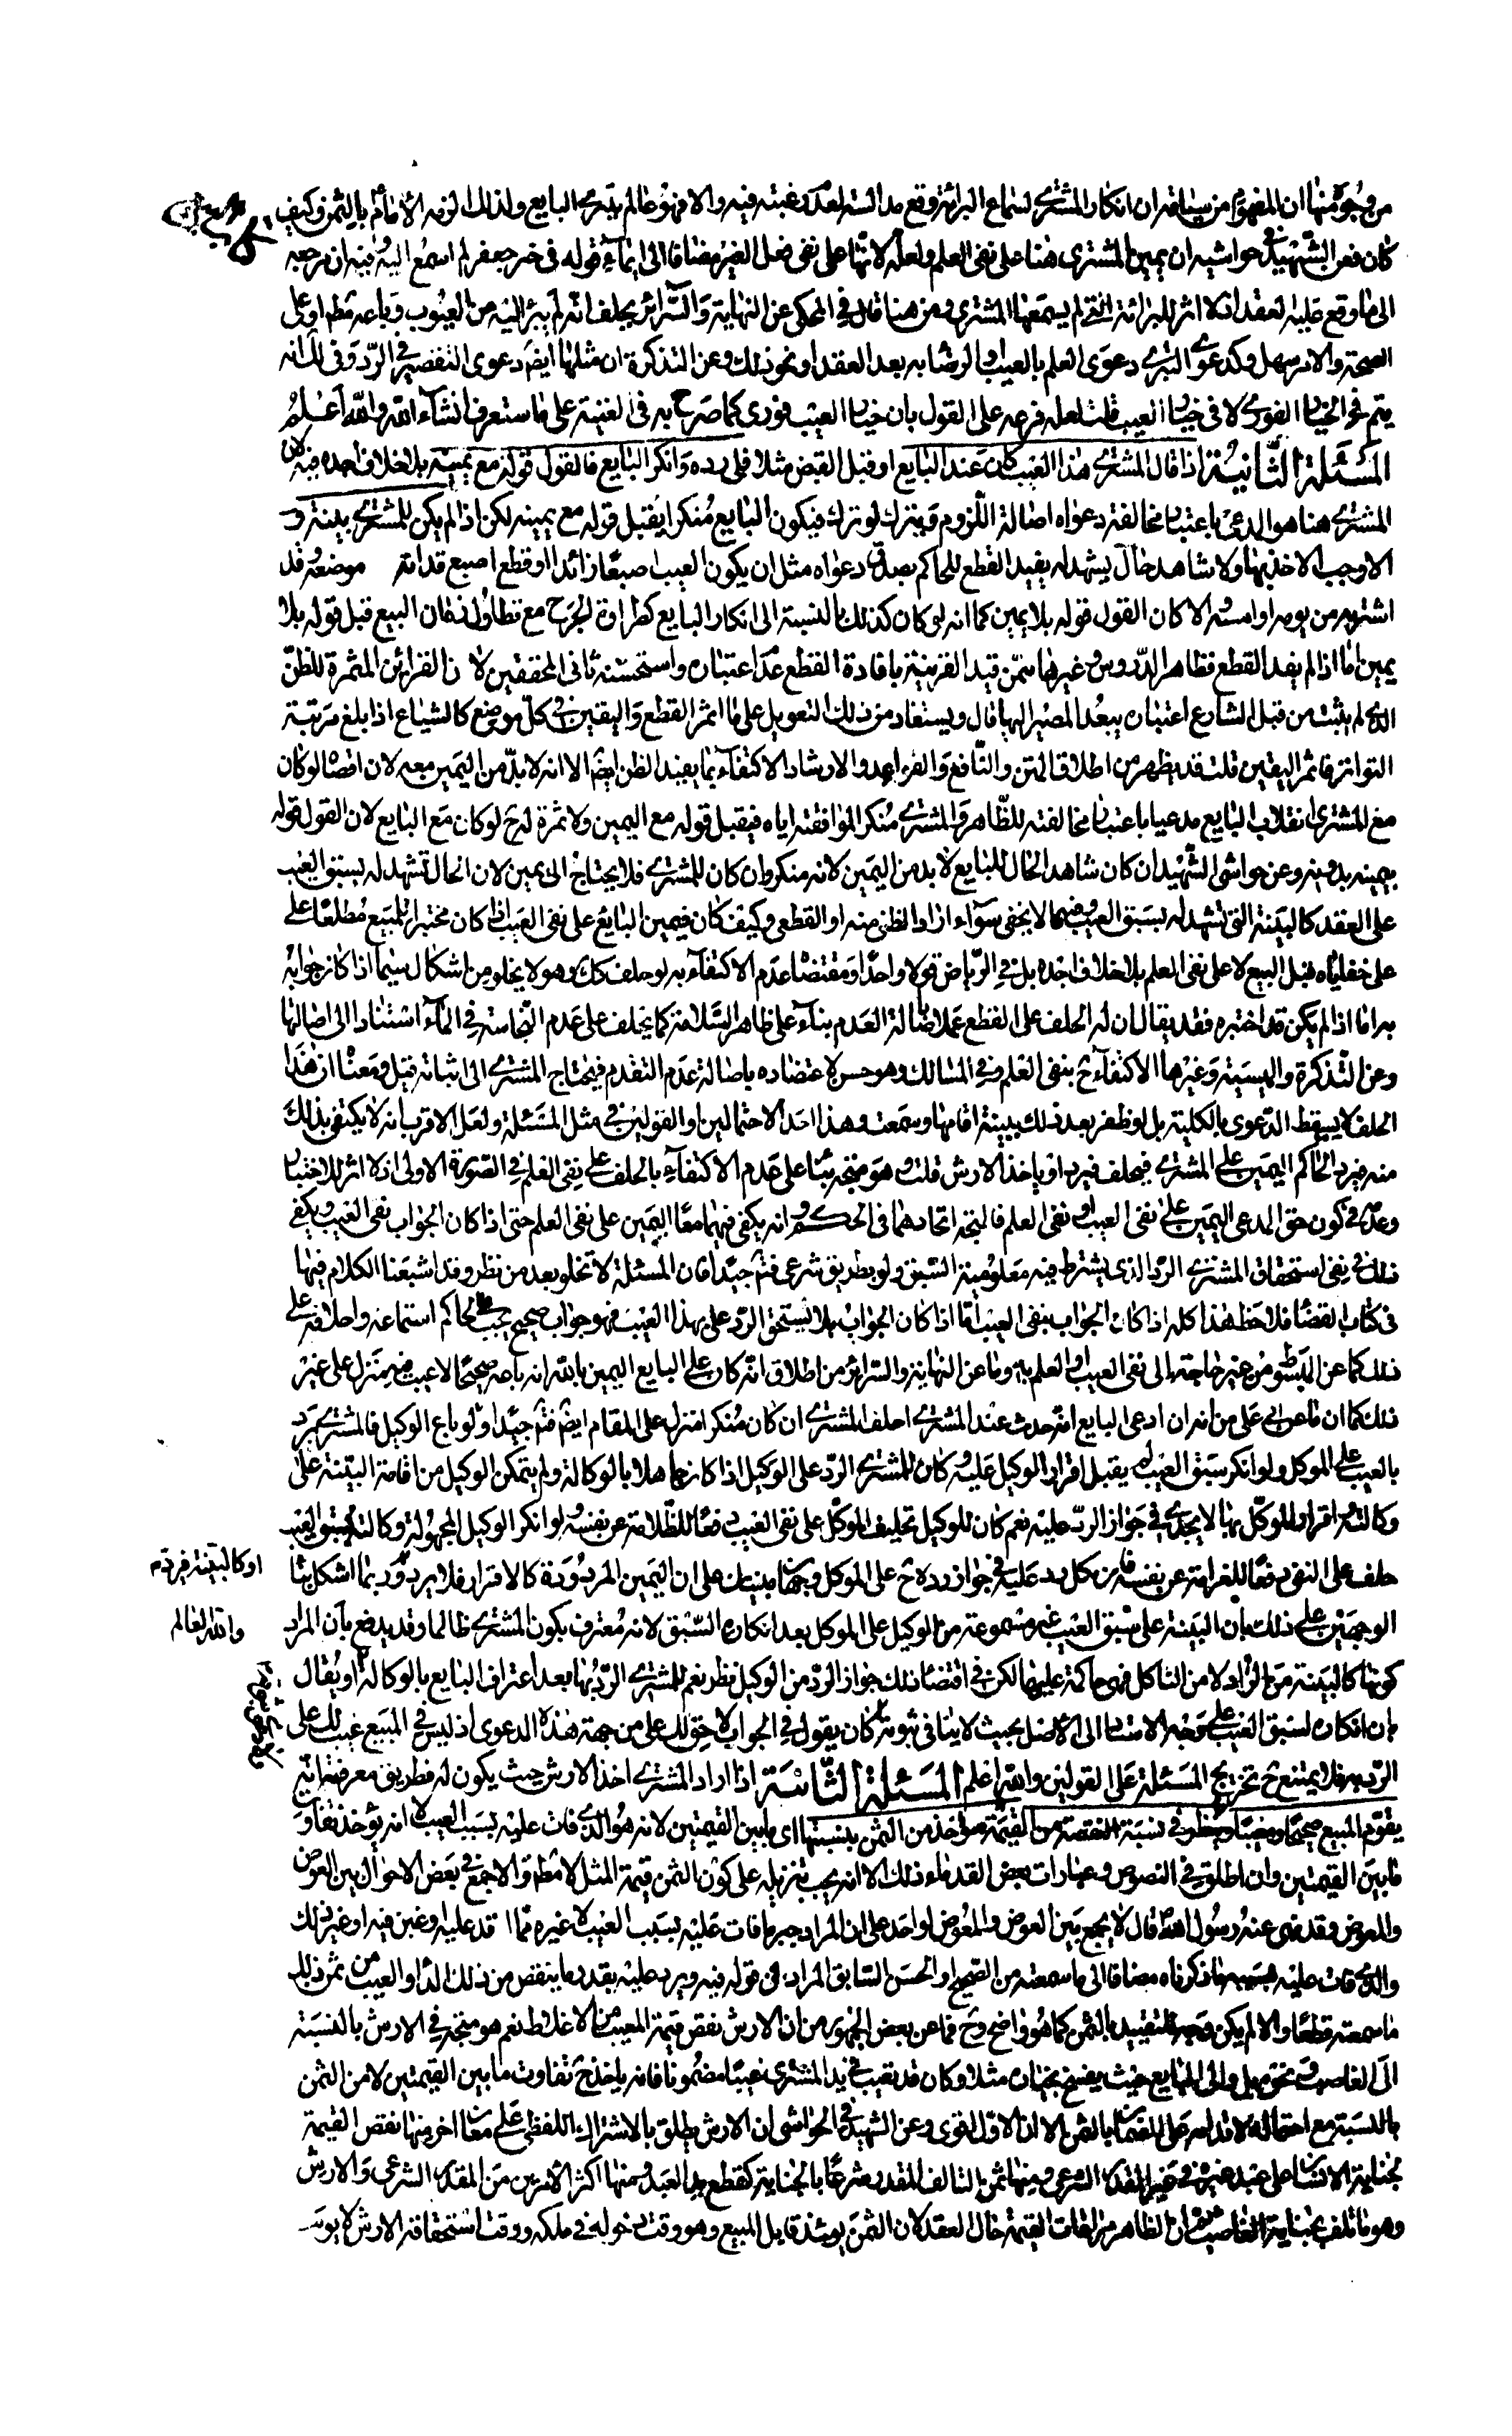 من وجوه منها ان المفهوم من سياقه ان انكار المشترى لسماع البرائة وقع مدالسة لعدم رغبته فيه والا فهو عالم بتبرى البايع ولذلك الزمه الامام بالثمن وكيف
كان فعن الشهيد فى حواشيه ان يمين المشترى هنا على نفى العلم ولعله لانها على نفى فعل الغير مضافا الى ايماء قوله فى خبر جعفر لم اسمع اليه وفيه ان مرجعه
الى ما وقع عليه العقد اذ لا اثر للبرائة التى لم يسمعها المشترى ومن هنا قال فى المحكى عن النهاية والسرائر يحلف انه لم يبرء اليه من العيوب وباعه مطلقا او على
الصحة والامر سهل وكدعوى التبرى دعوى العلم بالعيب او الرضا به بعد العقد او نحو ذلك وعن التذكرة ان مثلها ايضا دعوى التقصير فى الرد وفى ذلك انه
يتم فى الخيار الفورى لا فى خيار العيب قلت لعله فرعه على القول بان خيار العيب فورى كما صرح به فى الغنية على ما ستعرف انشاء الله والله اعلم
المسئلة الثانية اذا قال المشترى هذا العيب كان عند البايع او قبل القبض مثلا فلى رده وانكر البايع فالقول قوله مع يمينه بلا خلاف اجده فيه لان
المشترى هنا هو المدعى باعتبار مخالفة دعواه اصالة اللزوم ويترك لو ترك فيكون البايع منكرا يقبل قوله مع يمينه لكن اذا لم يكن للمشترى بينة و
الا وجب الاخذ بها ولا شاهد حال يشهد له يفيد القطع للحاكم بصدق دعواه مثل ان يكون العيب اصبعا زائدا او قطع اصبع قد اندمل موضعه وقد
اشتريه من يومه او امسه والا كان القول قوله بلا يمين كما انه لو كان كذلك بالنسبة الى انكار البايع كطراوة الجرح مع تطاول زمان البيع قبل قوله بلا
يمين اما اذا لم يفد القطع فظاهر الدروس وغيرها ممن قيد القرينة بافادة القطع عدم اعتباره واستحسنه ثانى المحققين لان القرائن المثمرة للظن
الذى لم يثبت من قبل الشارع اعتباره يبعد المصير اليها قال ويستفاد من ذلك التعويل على ما اثمر القطع واليقين فى كل موضع كالشياع اذا بلغ مرتبة
التواتر فاثمر اليقين قلت قد يظهر من اطلاق المتن والنافع والقواعد والارشاد الاكتفاء بما يفيد الظن ايضا الا انه لابد من اليمين معه لان اقصاه لو كان
مع المشترى انقلاب البايع مدعيا باعتبار مخالفته للظاهر والمشترى منكرا لموافقته اياه فيقبل قوله مع اليمين ولا ثمرة له ح لو كان مع البايع لان القول قوله
بيمينه بدونه وعن حواشى الشهيد ان كان شاهد الحال للبايع لابد من اليمين لانه منكر وان كان للمشترى فلا يحتاج الى يمين لان الحال تشهد له بسبق العيب
على العقد كالبينة التى تشهد له بسبق العيب وفيه ما لا يخفى سواء اراد الظنى منه او القطعى وكيف كان فيمين البايع على نفى العيب اذا كان مختبرا للمبيع مطلعا على
على خفاياه قبل البيع لا على نفى العلم بلا خلاف اجده بل فى الرياض قولا واحدا ومقتضاه عدم الاكتفاء به لو حلف كك وهو لا يخلو من اشكال سيما اذا كان جوابه
به اما اذا لم يكن قد اختبره فقد يقال ان له الحلف على القطع عملا باصالة العدم بناء على ظاهر السلامة كما يحلف على عدم النجاسة فى الماء استنادا الى اصالتها
وعن التذكرة والميسية وغيرها الاكتفاء ح بنفى العلم وفى المسالك وهو حسن لاعتضاده باصالة عدم التقدم فيحتاج المشترى الى اثباته قيل ومعناه ان هذا
الحلف لا يسقط الدعوى بالكلية بل لو ظفر بعد ذلك ببينة اقامها وسمعت وهذا احد الاحتمالين او القولين فى مثل المسئلة ولعل الاقرب انه لا يكتفى بذلك
منه فيرد الحاكم اليمين على المشترى فيحلف فيرد او ياخذ الارش قلت وهو متجه بناء على عدم الاكتفاء بالحلف على نفى العلم فى الصورة الاولى اذ لا اثر للاختبار
وعدمه فى كون حق المدعى اليمين على نفى العيب او نفى العلم فالمتجه اتحادهما فى الحكم وانه يكفى فيهما معا اليمين على نفى العلم حتى اذا كان الجواب نفى العيب ويكفى
ذلك فى نفى استحقاق المشترى الرد الذى يشترط فيه معلومية السبق ولو بطريق شرعى فتم جيدا فان المسئلة لا تخلو بعد من نظر وقد اشبعنا الكلام فيها
فى كتاب القضاء فلاحظ هذا كله اذا كان الجواب بنفى العيب اما اذا كان الجواب بلا يستحق الرد على بهذا العيب فهو جواب صحيح يجب على الحاكم استماعه واحلافه على
ذلك كما عن المبسوط من غير حاجة الى نفى العيب او العلم به وما عن النهاية والسرائر من اطلاق انه كان على البايع اليمين بالله انه باعه صحيحا لا عيب فيه منزل على غير
ذلك كما ان ما عن ابى على من انه ان ادعى البايع انه حدث عند المشترى احلف المشترى ان كان منكرا منزل على المقام ايضا فتم جيدا ولو باع الوكيل فالمشترى يرد
بالعيب على الموكل ولو انكر سبق العيب لم يقبل اقرار الوكيل عليه وكان للمشترى الرد على الوكيل اذا كان جاهلا بالوكالة ولم يتمكن الوكيل من اقامة البينة على
وكالته واقرار الموكل بها لا يجدى فى جواز الرد عليه نعم كان للوكيل تحليف الموكل على نفى العيب دفعا للظلامة عن نفسه ولو انكر الوكيل المجهولة وكالته سبق العيب
حلف على النفى دفعا للغرامة عن نفسه فان نكل رد عليه فى جواز رده ح على الموكل وجهان مبنيان على ان اليمين المردودة كالاقرار فلا يرد وربما اشكل بناء
اوكالبينة فيرد
الوجهين على ذلك بان البينة على سبق العيب غير مسموعة من الوكيل على الموكل بعد انكاره السبق لانه معترف بكون المشترى ظالما وقد يدفع بان المراد
والله العالم
كونها كالبينة من الراد لا من الناكل فهى حاكمة عليهما لكن فى اقتضاء ذلك جواز الرد من الوكيل نظر نعم للمشترى الرد بها بعد اعتراف البايع بالوكالة او يقال
بان انكاره لسبق العيب على وجه الاستناد الى الاصل بحيث لا ينافى ثبوته كان يقول فى الجواب لا حق لك على من جهة هذه الدعوى اذ ليس فى المبيع عيب لك على
الرد به فلا يمتنع ح تخريج المسئلة على القولين والله اعلم المسئلة الثالثة اذا اراد المشترى اخذ الارش حيث يكون له فطريق معرفته انه
يقوم المبيع صحيحا ومعيبا وينظر فى نسبة النقيصة من القيمة فيؤخذ من الثمن بنسبتها اى ما بين القيمتين لانه هو الذى فات عليه بسبب العيب لا انه يؤخذ تفاوت
ما بين القيمتين وان اطلق فى النصوص وعبارات بعض القدماء ذلك الا انه يجب تنزيله على كون الثمن قيمة المثل لا مطلقا والا جمع فى بعض الاحوال بين العوض
والمعوض وقد نهى عنه رسول الله قال لا يجمع بين العوض والمعوض لواحد على ان المراد جبر ما فات عليه بسبب العيب لا غيره مما اقدم عليه او غبن فيه او غير ذلك
والذى فات عليه بسببه ما ذكرناه مضافا الى ما سمعته من الصحيح او الحسن السابق المراد من قوله فيه ويرد عليه بقدر ما ينقص من ذلك الداء والعيب من ثمن ذلك
ما سمعته قطعا والا لم يكن وجه للتقييد بالثمن كما هو واضح وح فما عن بعض الجمهور من ان الارش نقص قيمة المعيب من الاغلاط نعم هو متجه فى الارش بالنسبة
الى الغاصب ونحوه بل والى البايع حيث يفسخ بخياره مثلا وكان قد تعيب فى يد المشترى عيبا مضمونا فانه ياخذ ح تفاوت ما بين القيمتين لا من الثمن
بالنسبة مع احتماله لاقدامه على الضمان بالثمن الا ان الاول اقوى وعن الشهيد فى الحواشى ان الارش يطلق بالاشتراك اللفظى على معان اخر منها نقص القيمة
لجناية الانسان على عبد غيره فى غير المقدر الشرعى ومنها ثمن التالف المقدر شرعا بالجناية كقطع يد العبد ومنها اكثر الامرين من المقدر الشرعى والارش
وهو ما تلف بجناية الغاصب ثم ان الظاهر مراعات القيمة حال العقد لان الثمن يومئذ قابل المبيع وهو وقت دخوله فى ملكه ووقت استحقاقه الارش لا يوم